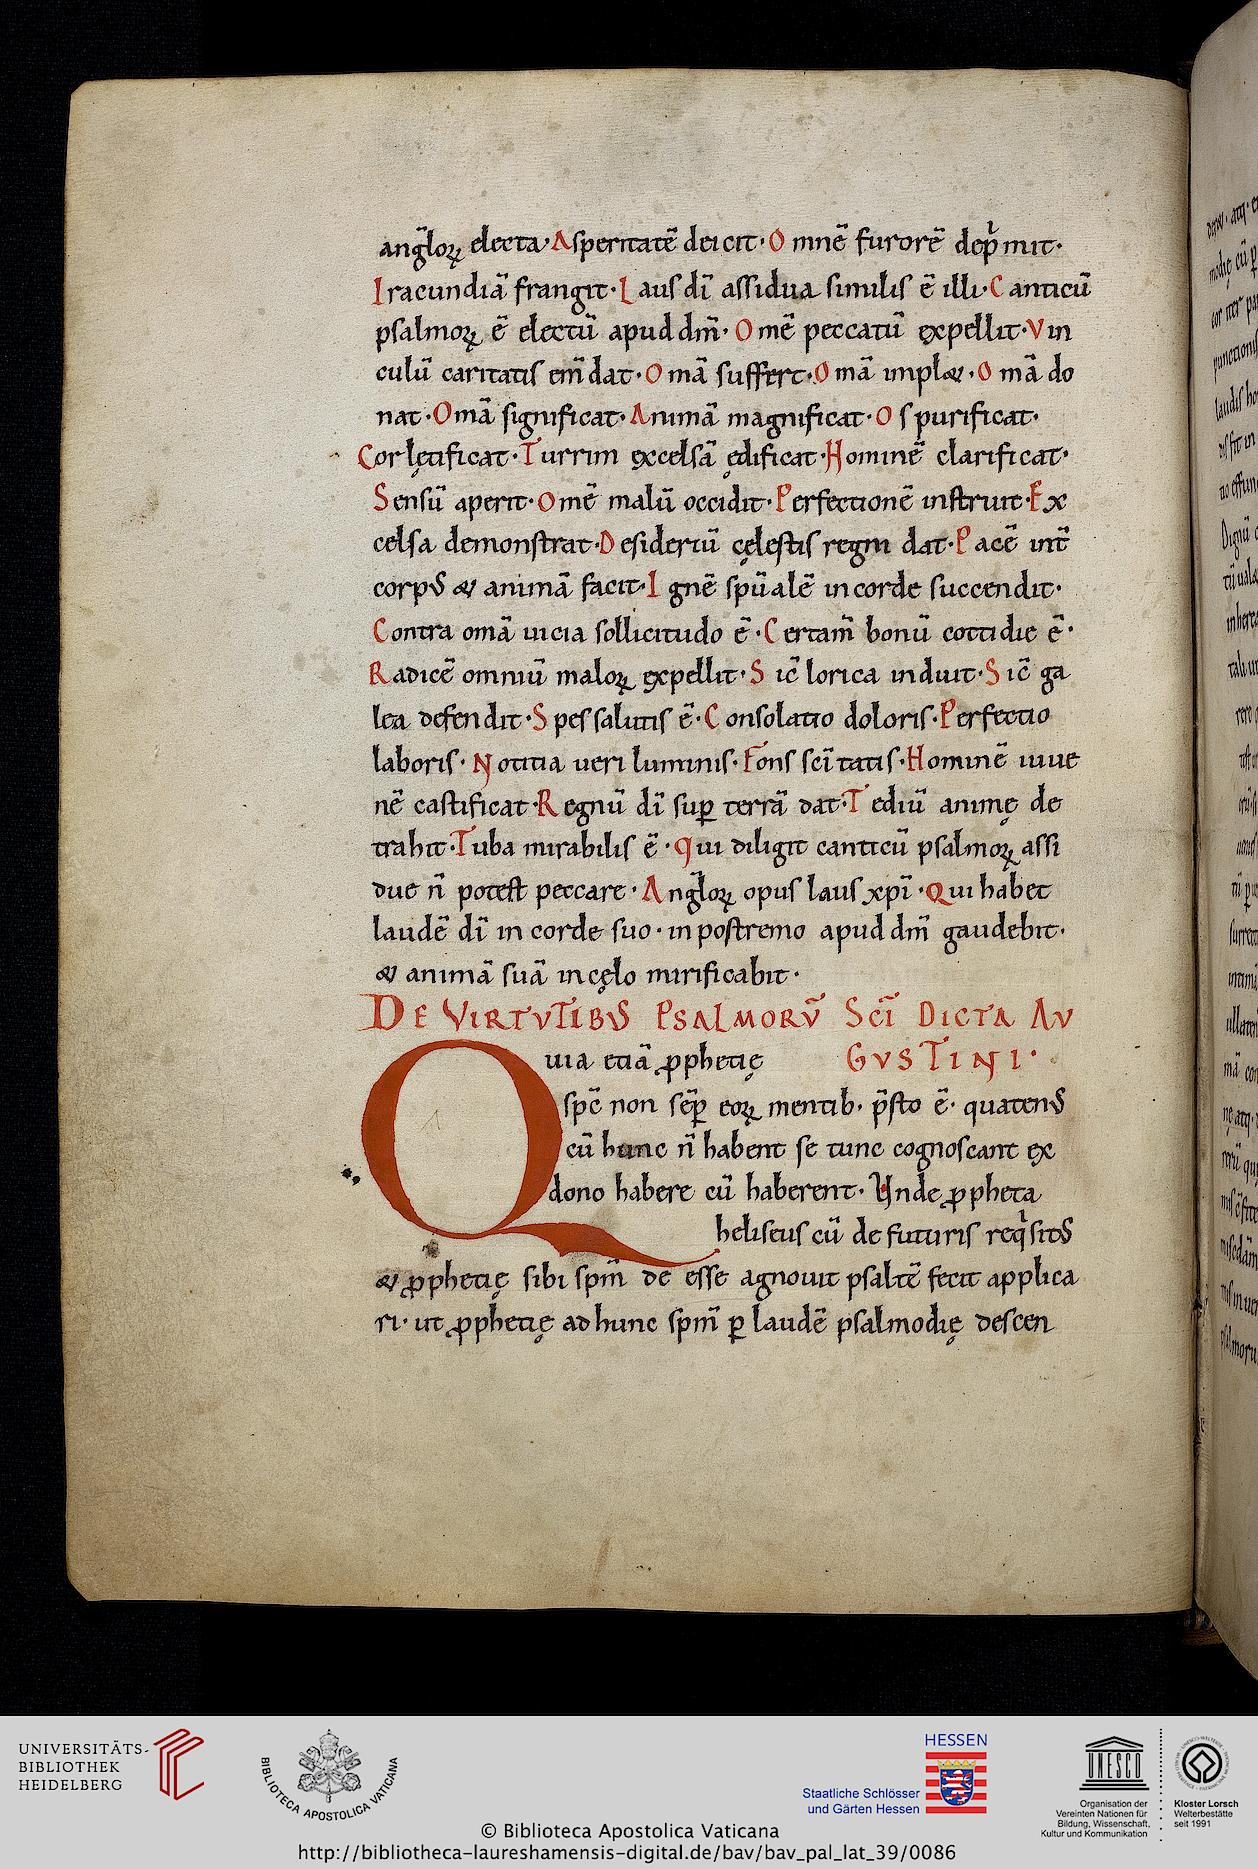 angl̃oꝝ electa· Asperitatẽ deicit· Omnẽ furorẽ dep̃mit·
Iracundiã frangit· Laus dĩ assidua similis ẽ illi· Canticũ
psalmoꝝ ẽ electũ apud dm̃· Omẽ peccatũ expellit· Vin
culũ caritatis em̃dat· Omã suffert· Omã implet· Omã do
nat· Omã significat· Animã magnificat· Os purificat·
Cor lętificat· Turrim excelsã ędificat· Hominẽ clarificat·
Sensũ aperit· Omẽ malũ occidit· Perfectionẽ instruit· Ex
celsa demonstrat· Desideriũ cęlestis regni dat· Pacẽ int̃
corpus & animã facit· Ignẽ spũalẽ in corde succendit·
Contra omã uicia sollicitudo ẽ· Certam̃ bonũ cottidie ẽ·
Radicẽ omniũ maloꝝ expellit· Sic̃ lorica induit· Sic̃ ga
lea defendit· Spes salutis ẽ· Consolatio doloris· Perfectio
laboris· Notitia ueri luminis· Fons sci̅tatis· Hominẽ iuue
nẽ castificat· Regnũ dĩ suꝑ terrã dat· Tediũ animę de
trahit· Tuba mirabilis ẽ· Qui diligit canticũ psalmoꝝ assi
due ñ potest peccare· Angl̃oꝝ opus laus xp̃i· Qui habet
laudẽ dĩ in corde suo· in postremo apud dm̃ gaudebit·
& animã suã in cęlo mirificabit·
DE VIRTVTIBVS PSALMORṼ SCĨ DICTA AV
GVSTINI·
Quia etiã ꝓphetię
spc̃ non sẽꝑ eoꝝ mentib· p̃sto ẽ· quatenus
cũ hunc ñ habent se tunc cognoscant ex
dono habere cũ haberent· Unde ꝓpheta
heliseus cũ de futuris reqͥsitus
& ꝓphetię sibi spm̃ de esse agnouit psaltẽ fecit applica
ri· ut ꝓphetię ad hunc spm̃ ꝑ laudẽ psalmodię descen
UNIVERSITÄTS-
BIBLIOTHEK
HEIDELBERG
BIBLIOTECA APOSTOLICA VATICANA
HESSEN
Staatliche Schlösser
und Gärten Hessen
UNESCO
Organisation der
Vereinten Nationen für
Bildung, Wissenschaft,
Kultur und Kommunikation
Kloster Lorsch
Welterbestätte
seit 1991
© Biblioteca Apostolica Vaticana
http://bibliotheca-laureshamensis-digital.de/bav/bav_pal_lat_39/0086